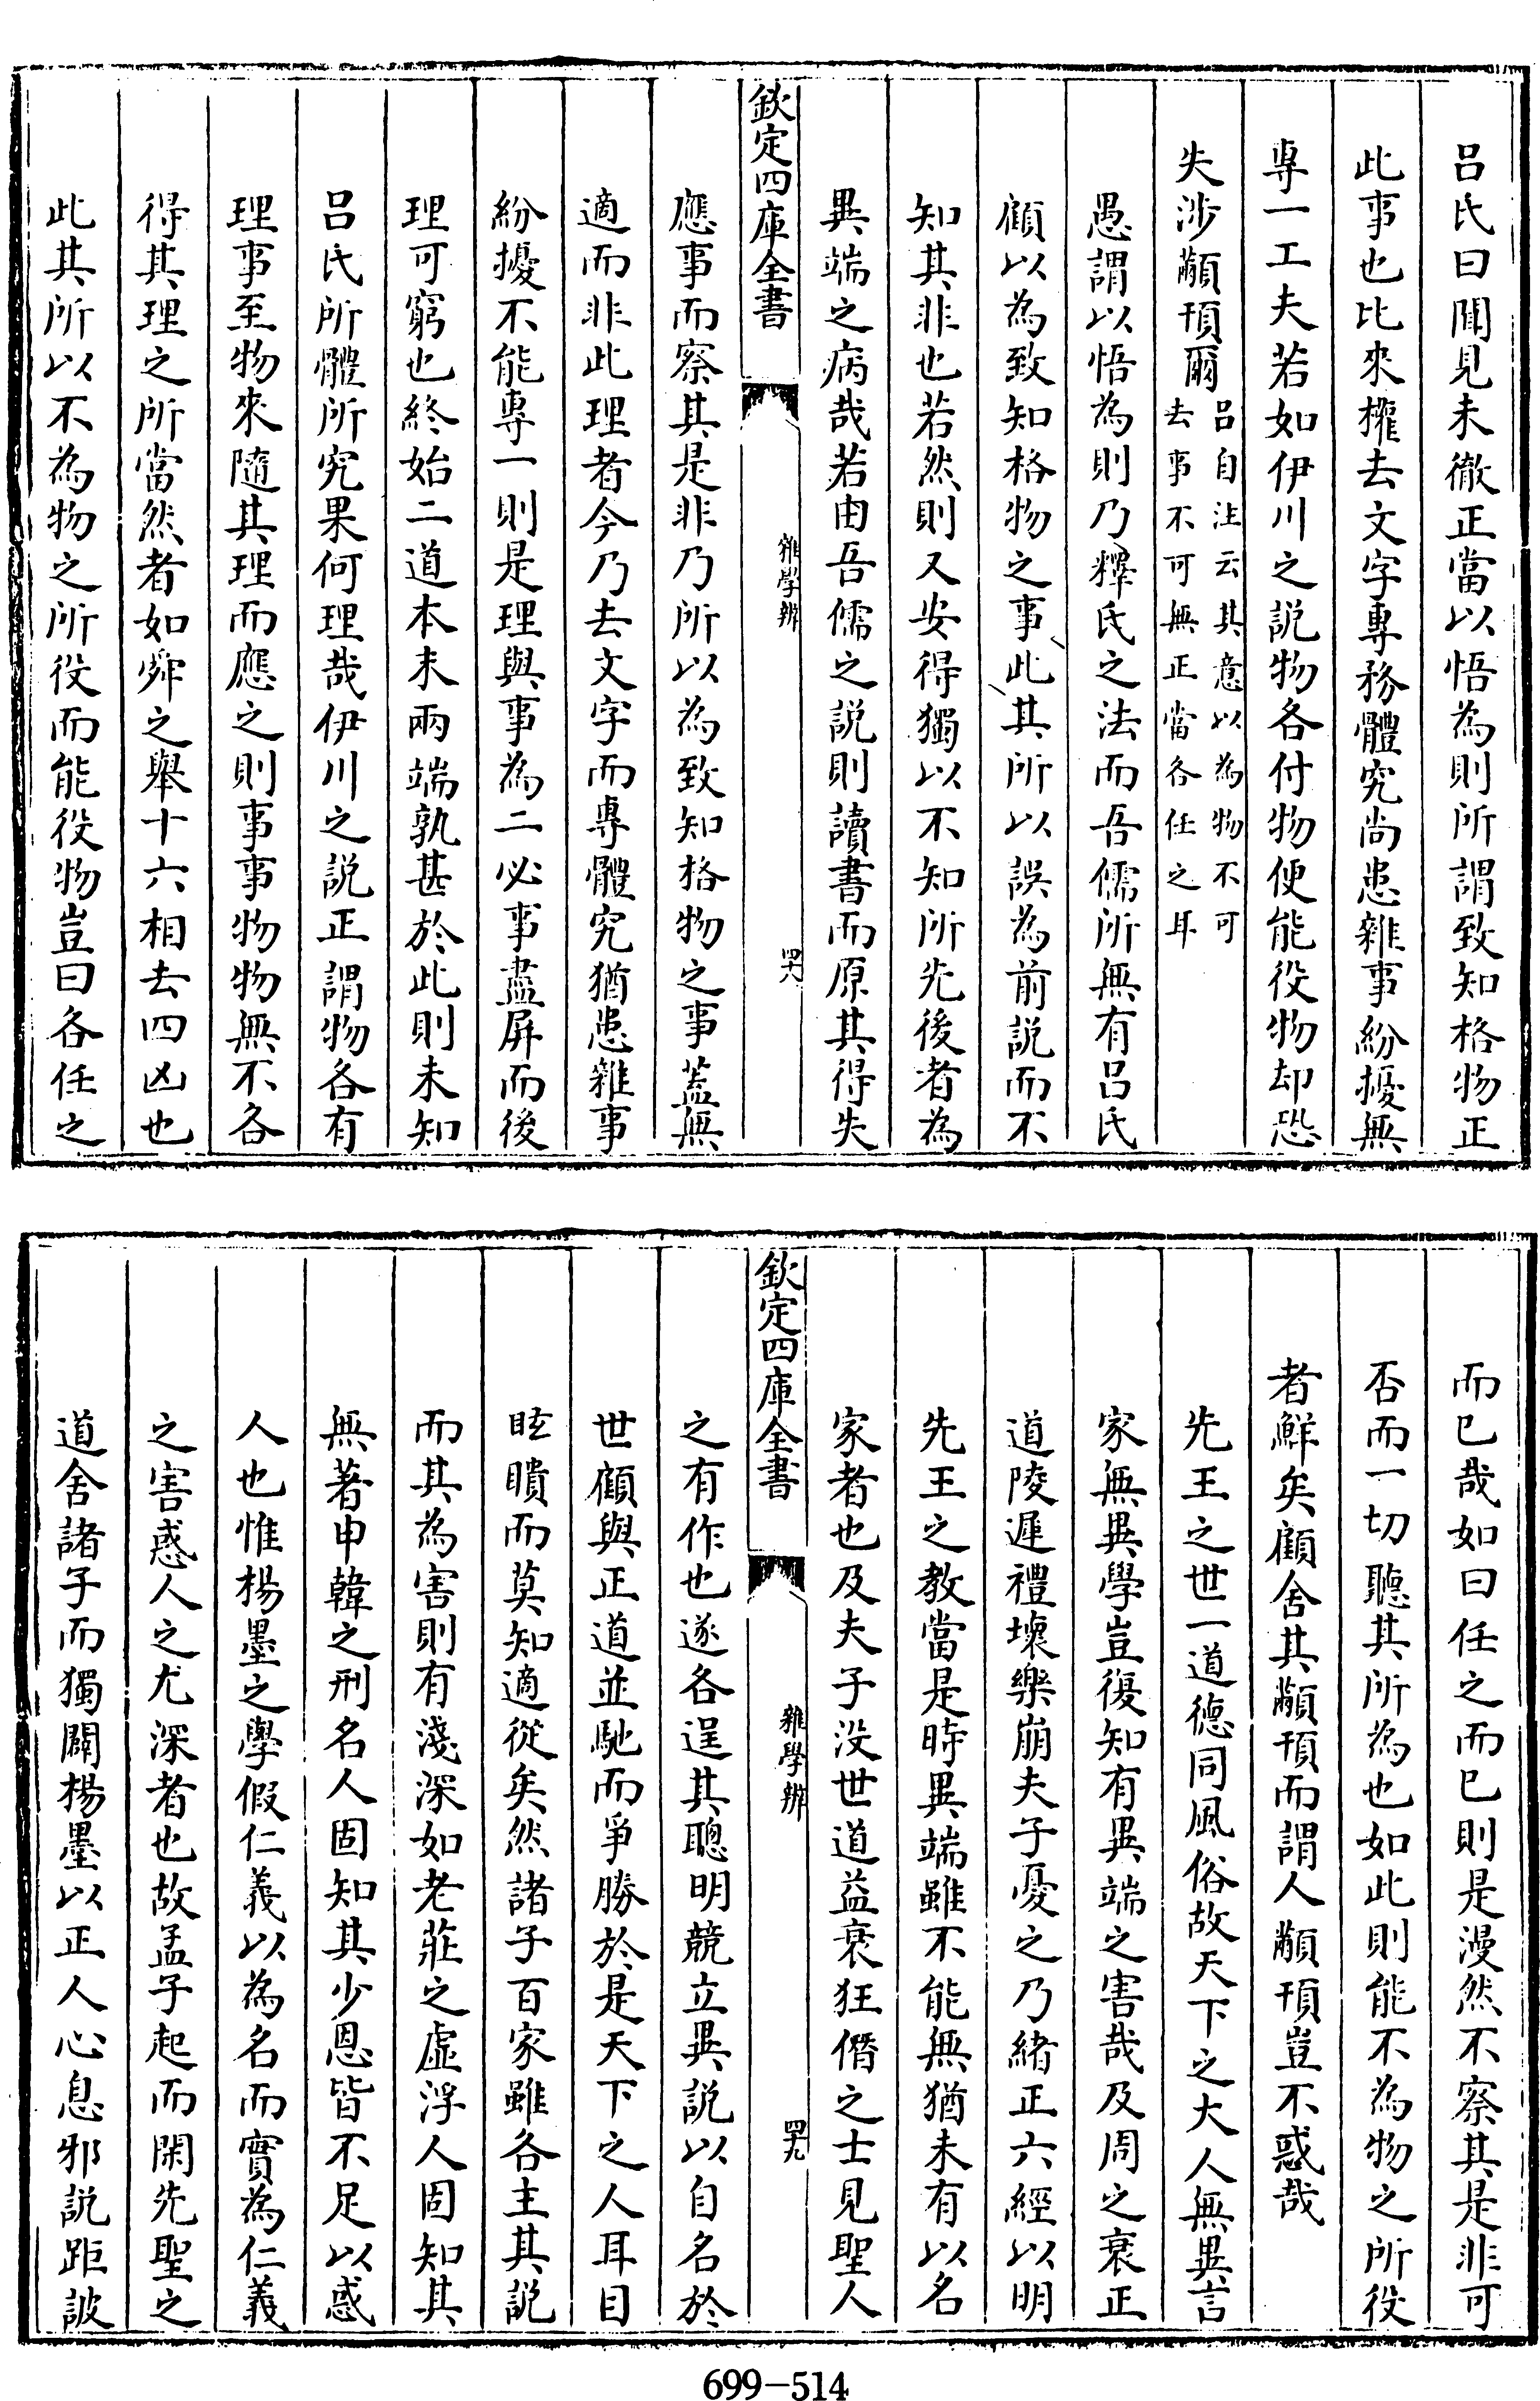 呂氏曰聞見未徹正當以悟為則所謂致知格物正
此事也比來權去文字專務體究尚患雜事紛擾無
專一工夫若如伊川之説物各付物便能役物却恐
失涉顢頇爾呂自注云其意以為物不可
去事不可無正當各任之耳
愚謂以悟為則乃釋氏之法而吾儒所無有呂氏
顧以為致知格物之事此其所以誤為前説而不
知其非也若然則又安得獨以不知所先後者為
異端之病哉若由吾儒之説則讀書而原其得失
欽定四庫全書
雜學辨
四十八
應事而察其是非乃所以為致知格物之事蓋無
適而非此理者今乃去文字而專體究猶患雜事
紛擾不能專一則是理與事為二必事盡屏而後
理可窮也終始二道本末兩端孰甚於此則未知
呂氏所體所究果何理哉伊川之説正謂物各有
理事至物來隨其理而應之則事事物物無不各
得其理之所當然者如舜之舉十六相去四凶也
此其所以不為物之所役而能役物豈曰各任之
而已哉如曰任之而已則是漫然不察其是非可
否而一切聽其所為也如此則能不為物之所役
者鮮矣顧舍其顢頇而謂人顢頇豈不惑哉
先王之世一道德同風俗故天下之大人無異言
家無異學豈復知有異端之害哉及周之衰正
道陵遲禮壞樂崩夫子憂之乃緒正六經以明
先王之教當是時異端雖不能無猶未有以名
家者也及夫子没世道益衰狂僭之士見聖人
欽定四庫全書
雜學辨
四十九
之有作也遂各逞其聰明競立異説以自名於
世顧與正道並馳而爭勝於是天下之人耳目
眩瞶而莫知適從矣然諸子百家雖各主其説
而其為害則有淺深如老莊之虛浮人固知其
無著申韓之刑名人固知其少恩皆不足以惑
人也惟楊墨之學假仁義以為名而實為仁義
之害惑人之尤深者也故孟子起而閑先聖之
道舍諸子而獨闢楊墨以正人心息邪説距詖
699-514